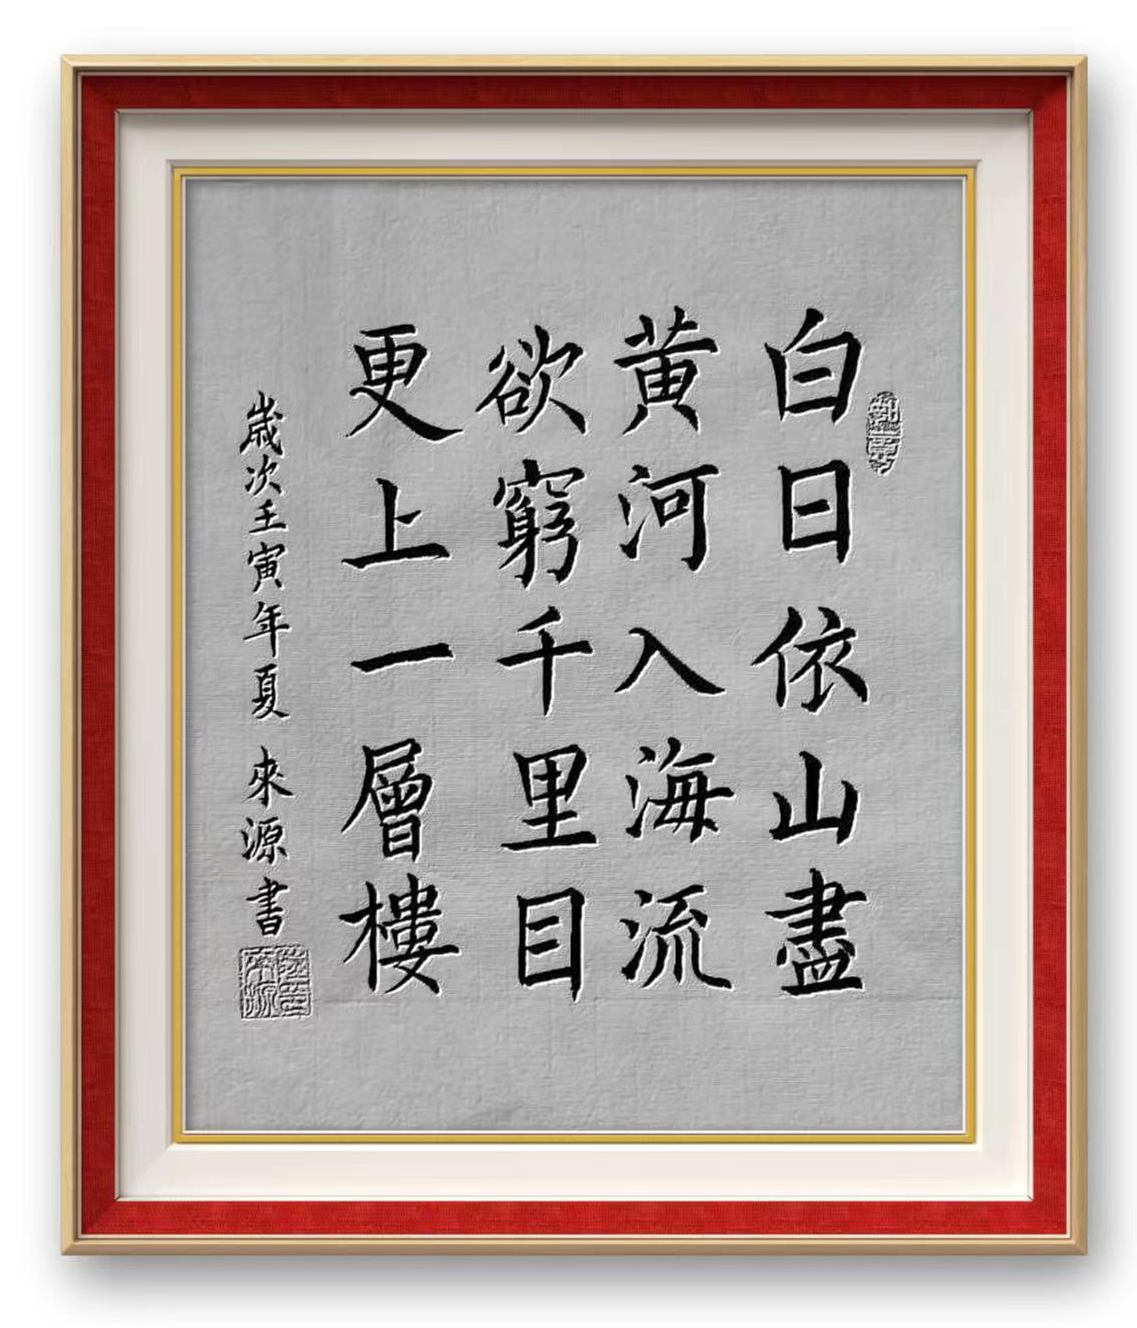 白日依山盡
黄河入海流
欲窮千里目
更上一層樓
歳次壬寅年夏 來源書